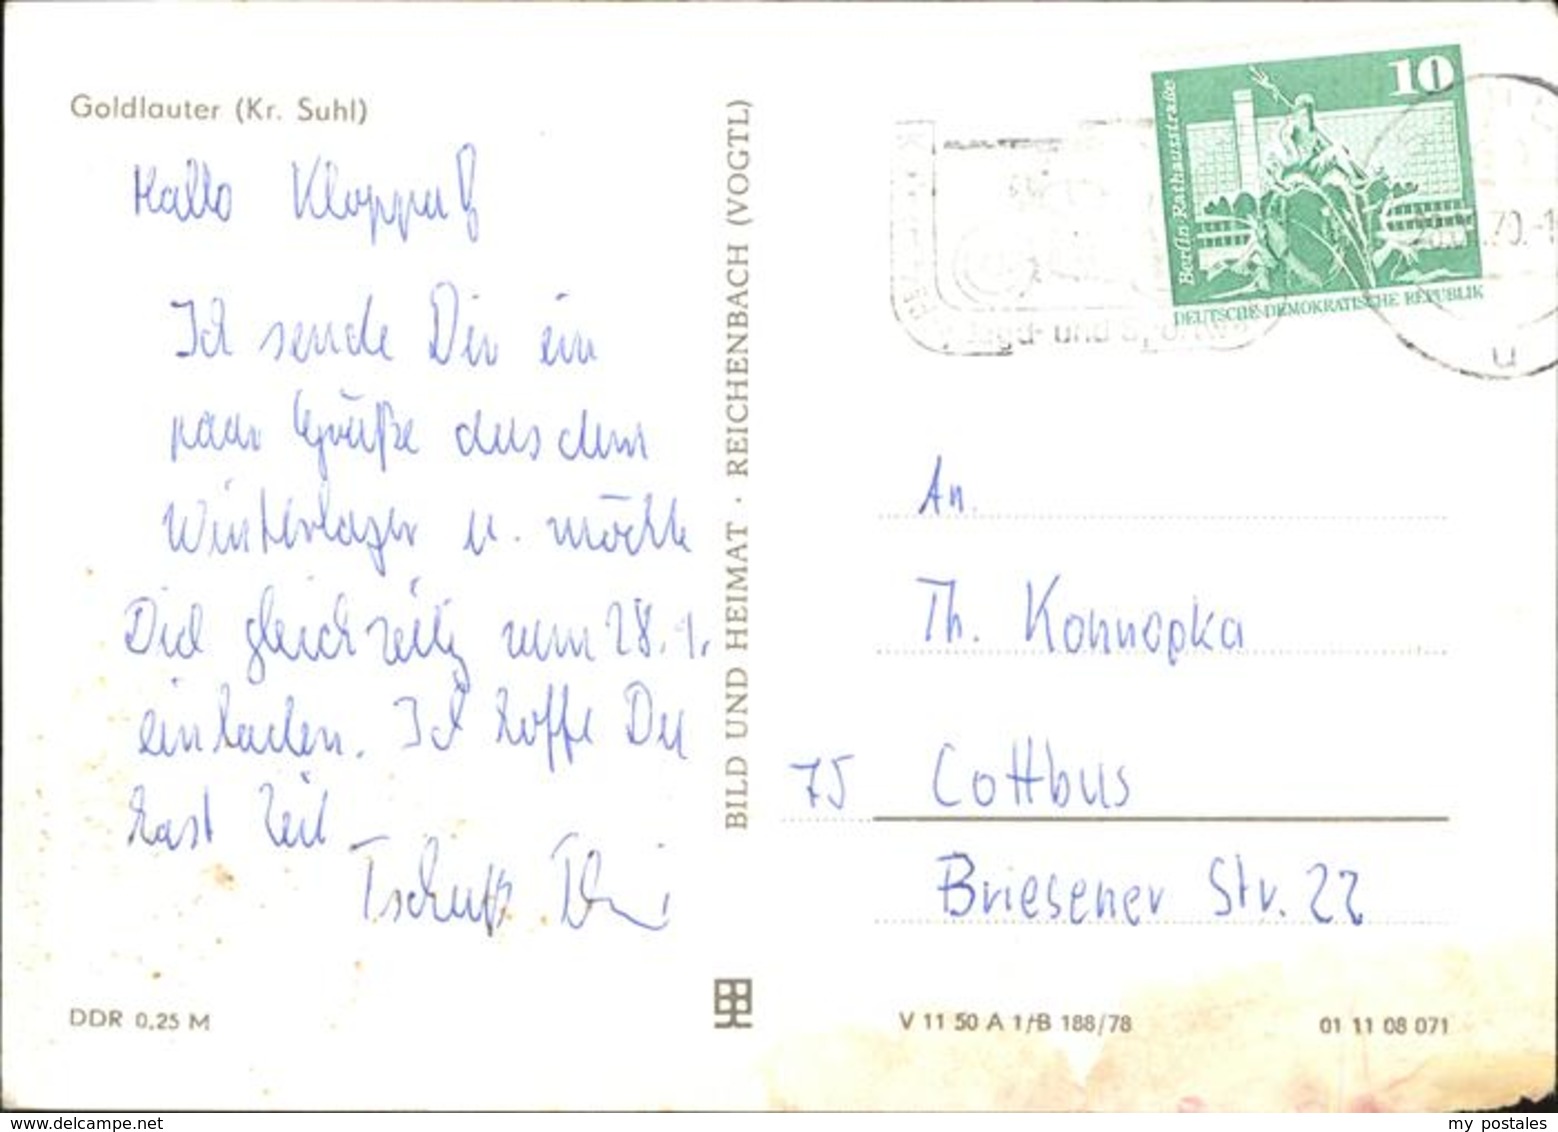 Goldlauter (Kr. Suhl)
Hallo
Ich sende Dir ein
paar Grüße aus dem
Winterlager u. möchte
Dich gleichzeitig zum 28.1.
einladen. Ich hoffe Du
hast Zeit
Tschüß
DDR 0,25 M
BILD UND HEIMAT · REICHENBACH (VOGTL)
10
Berlin Rathausstraße
DEUTSCHE DEMOKRATISCHE REPUBLIK
und
u
An
Th. Konnopka
75 Cottbus
Briesener Str. 22
V 11 50 A 1/B 188/78
01 11 08 071
www.delcampe.net
my postales